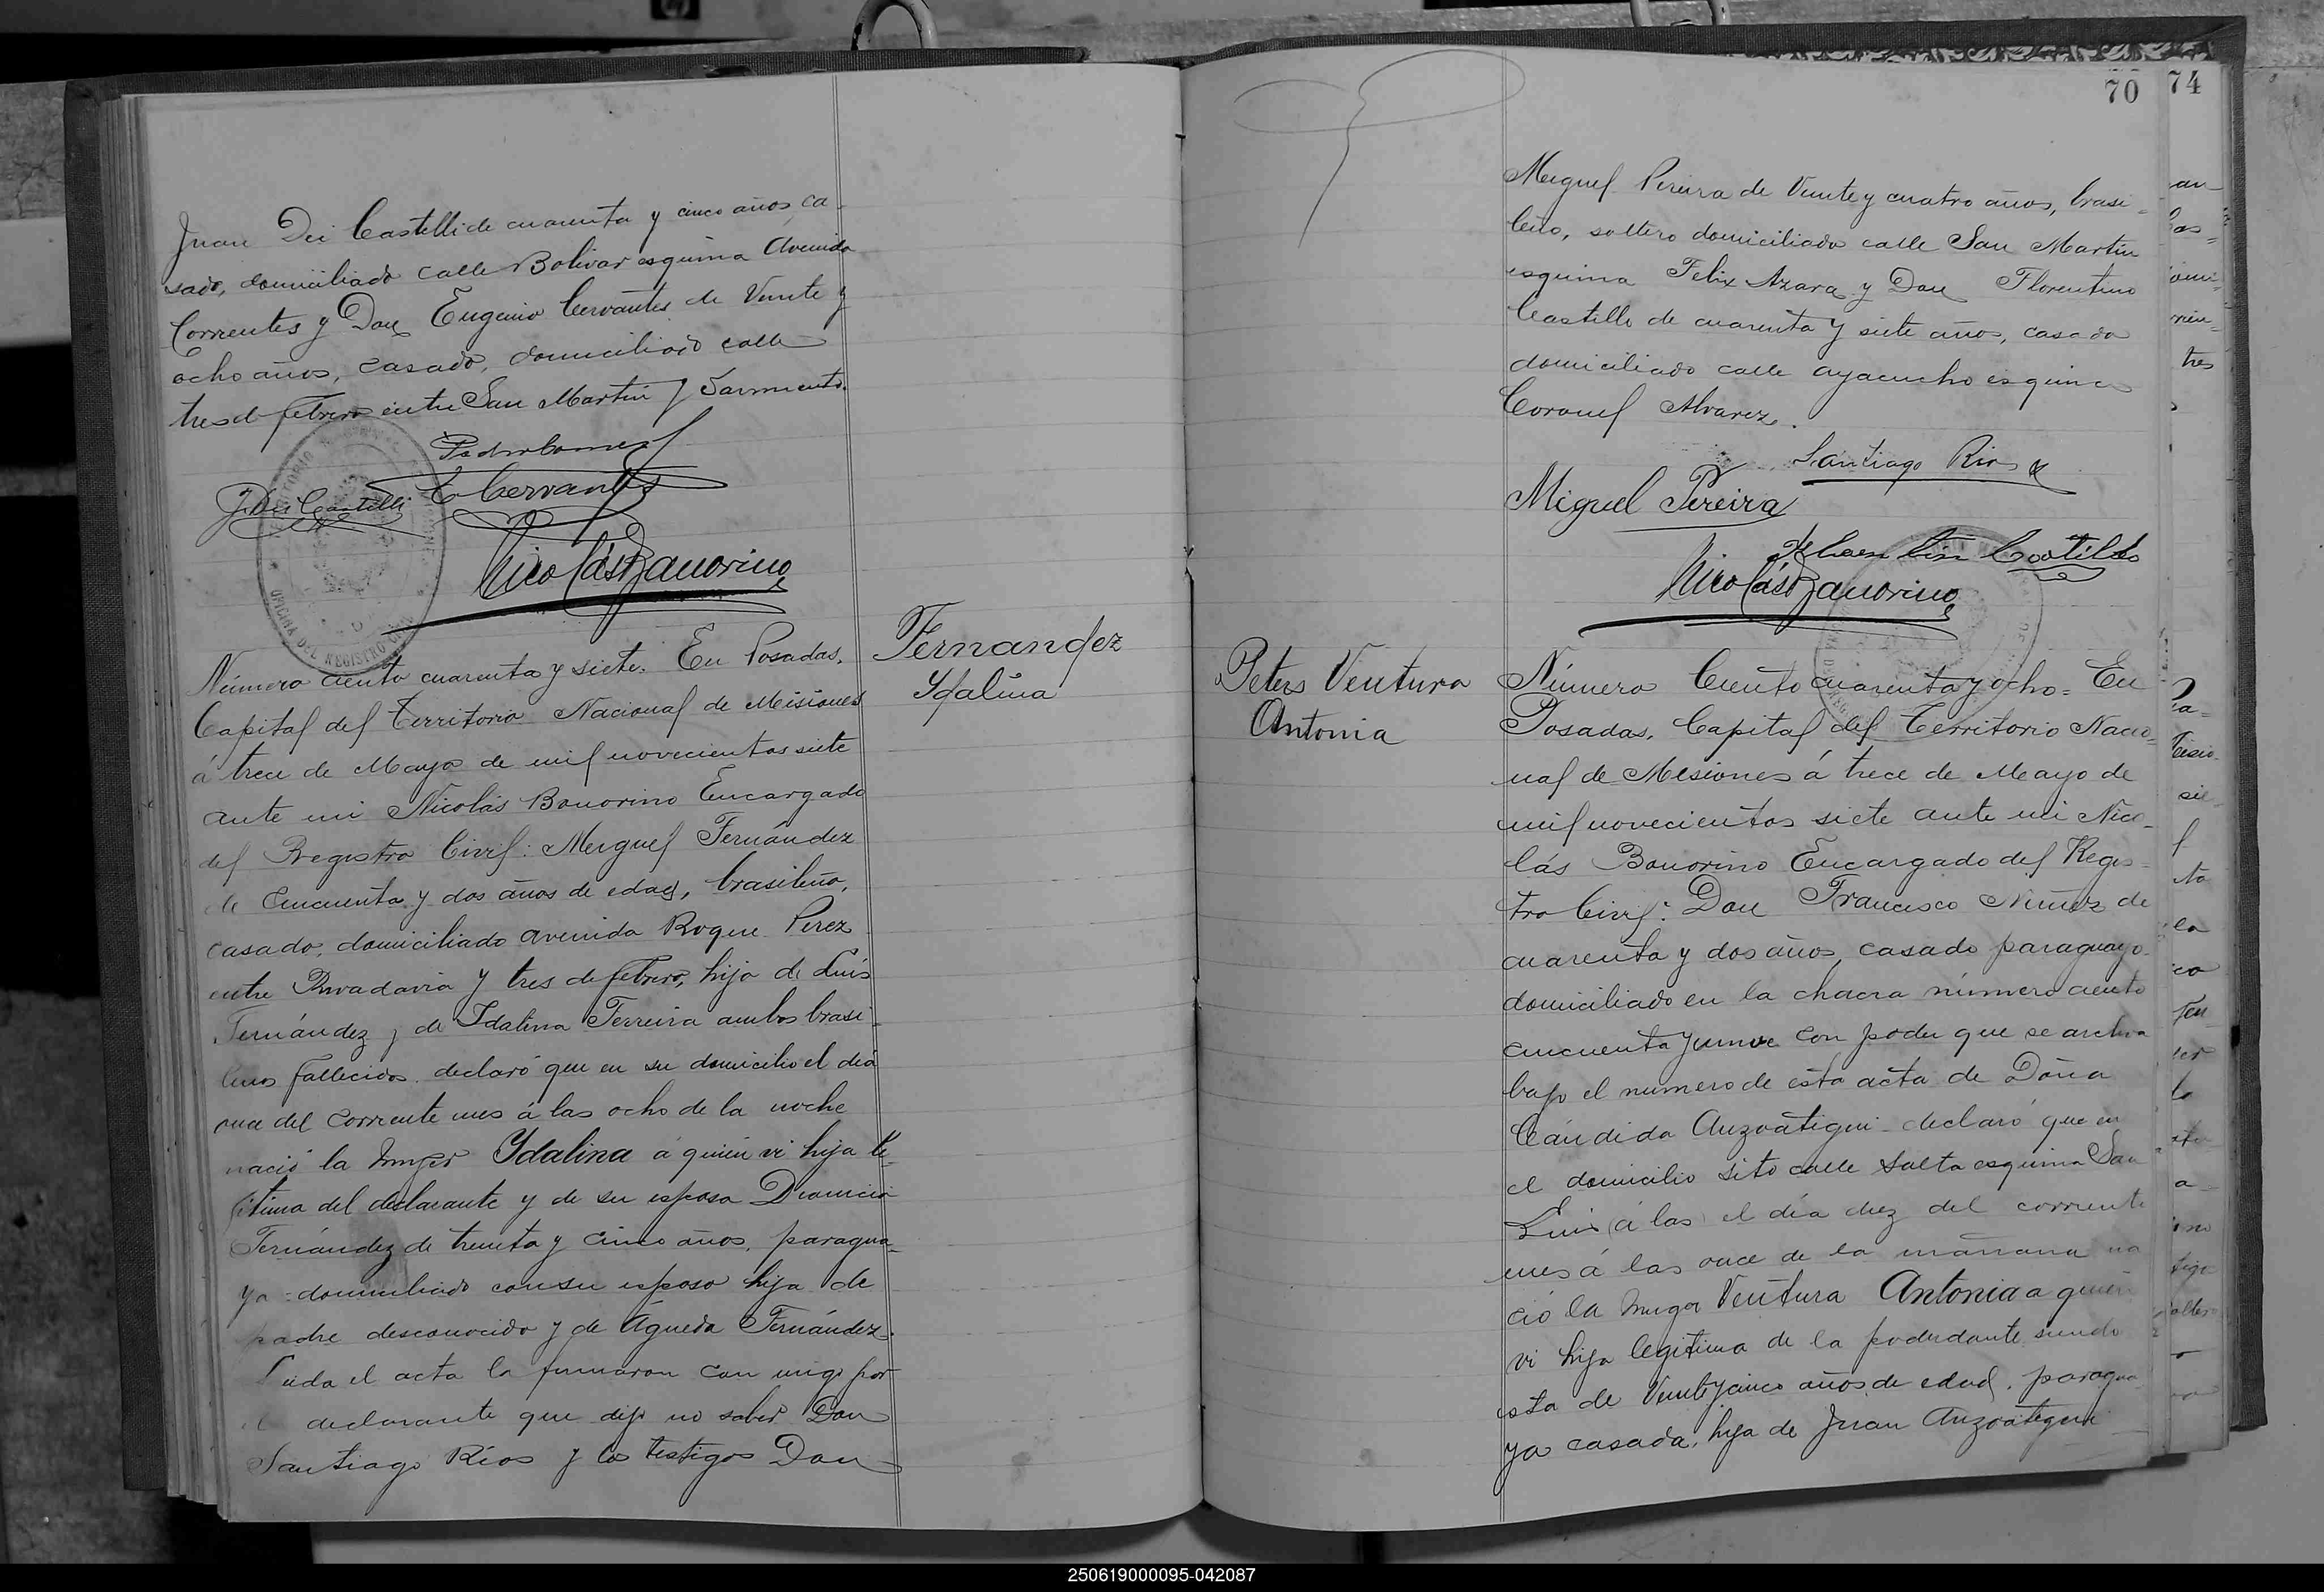 Juan Dei Castelli de cuarenta y cinco años, ca-
sado, domiciliado calle Bolivar esquina Avenida
Corrientes y Don Eugenio Cervantes de Veinte y
ocho años, casado, domiciliado calle
tres de febrero entre San Martin y Sarmiento.
Pedro Gomez
J. Dei Castelli E Cervantes
Nicolás Bonorino
OFICINA DEL REGISTRO CIVIL
Fernandez
Ydalina
Número ciento cuarenta y siete. En Posadas,
Capital del Territorio Nacional de Misiones
á trece de Mayo de mil novecientos siete
ante mi Nicolás Bonorino Encargado
del Registro Civil: Miguel Fernández
de Cincuenta y dos años de edad, brasileño,
casado, domiciliado avenida Roque Perez
entre Rivadavia y tres de febrero, hijo de Luis
Fernández y de Idalina Ferreira ambos brasi-
leños fallecidos declaró que en su domicilio el dia
once del corriente mes á las ocho de la noche
nació la mujer Ydalina á quien vi hija le-
jitima del declarante y de su esposa Dionicia
Fernández de treinta y cinco años, paragua-
ya domiciliado con su esposo hija de
padre desconocido y de Águeda Fernández.
Leida el acta la firmaron con migo por
el declarante que dijo no saber Don
Santiago Ríos y los testigos Don
70 74
Miguel Pereira de Veinte y cuatro años, brasi-
leño, soltero domiciliado calle San Martin
esquina Felix Azara y Don Florentino
Castillo de cuarenta y siete años, casado
domiciliado calle ayacucho esquina
Coronel Alvarez.
Santiago Rios
Miguel Pereira
Florentin Castillo
Nicolás Bonorino
Peters Ventura
Antonia
Número Ciento cuarenta y ocho. En
Posadas, Capital del Territorio Nacio-
nal de Misiones á trece de Mayo de
mil novecientos siete ante mi Nico-
lás Bonorino Encargado del Regis-
tro Civil: Don Francisco Nuñez de
cuarenta y dos años, casado paraguayo
domiciliado en la chacra número ciento
cincuenta y nueve con poder que se archiva
bajo el número de esta acta de Doña
Cándida Anzoátigui declaró que en
el domicilio sito calle Salta esquina San
Luis (á las) el día diez del corriente
mes á las once de la mañana na
ció la mujer Ventura Antonia a quien
vi hija legítima de la poderdante siendo
esta de Veinte y cinco años de edad, paragua
ya casada, hija de Juan Anzoátegui
250619000095-042087